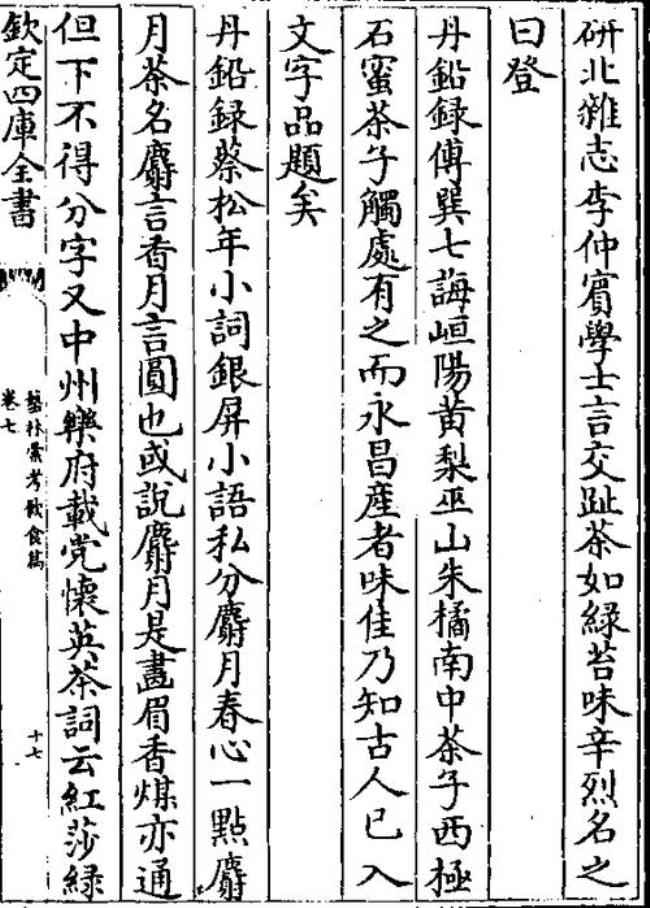 研北雜志李仲賓學士言交趾茶如綠苔味辛烈名之
曰登
丹鉛録傅巽七誨峘陽黄梨巫山朱橘南中茶子西極
石蜜茶子觸處有之而永昌産者味佳乃知古人已入
文字品題矣
丹鉛録蔡松年小詞銀屏小語私分麝月春心一點麝
月茶名麝言香月言圓也或說麝月是畫眉香煤亦通
但下不得分字又中州樂府載党懷英茶詞云紅莎緑
欽定四庫全書
藝林彚考飲食篇
卷七
十七